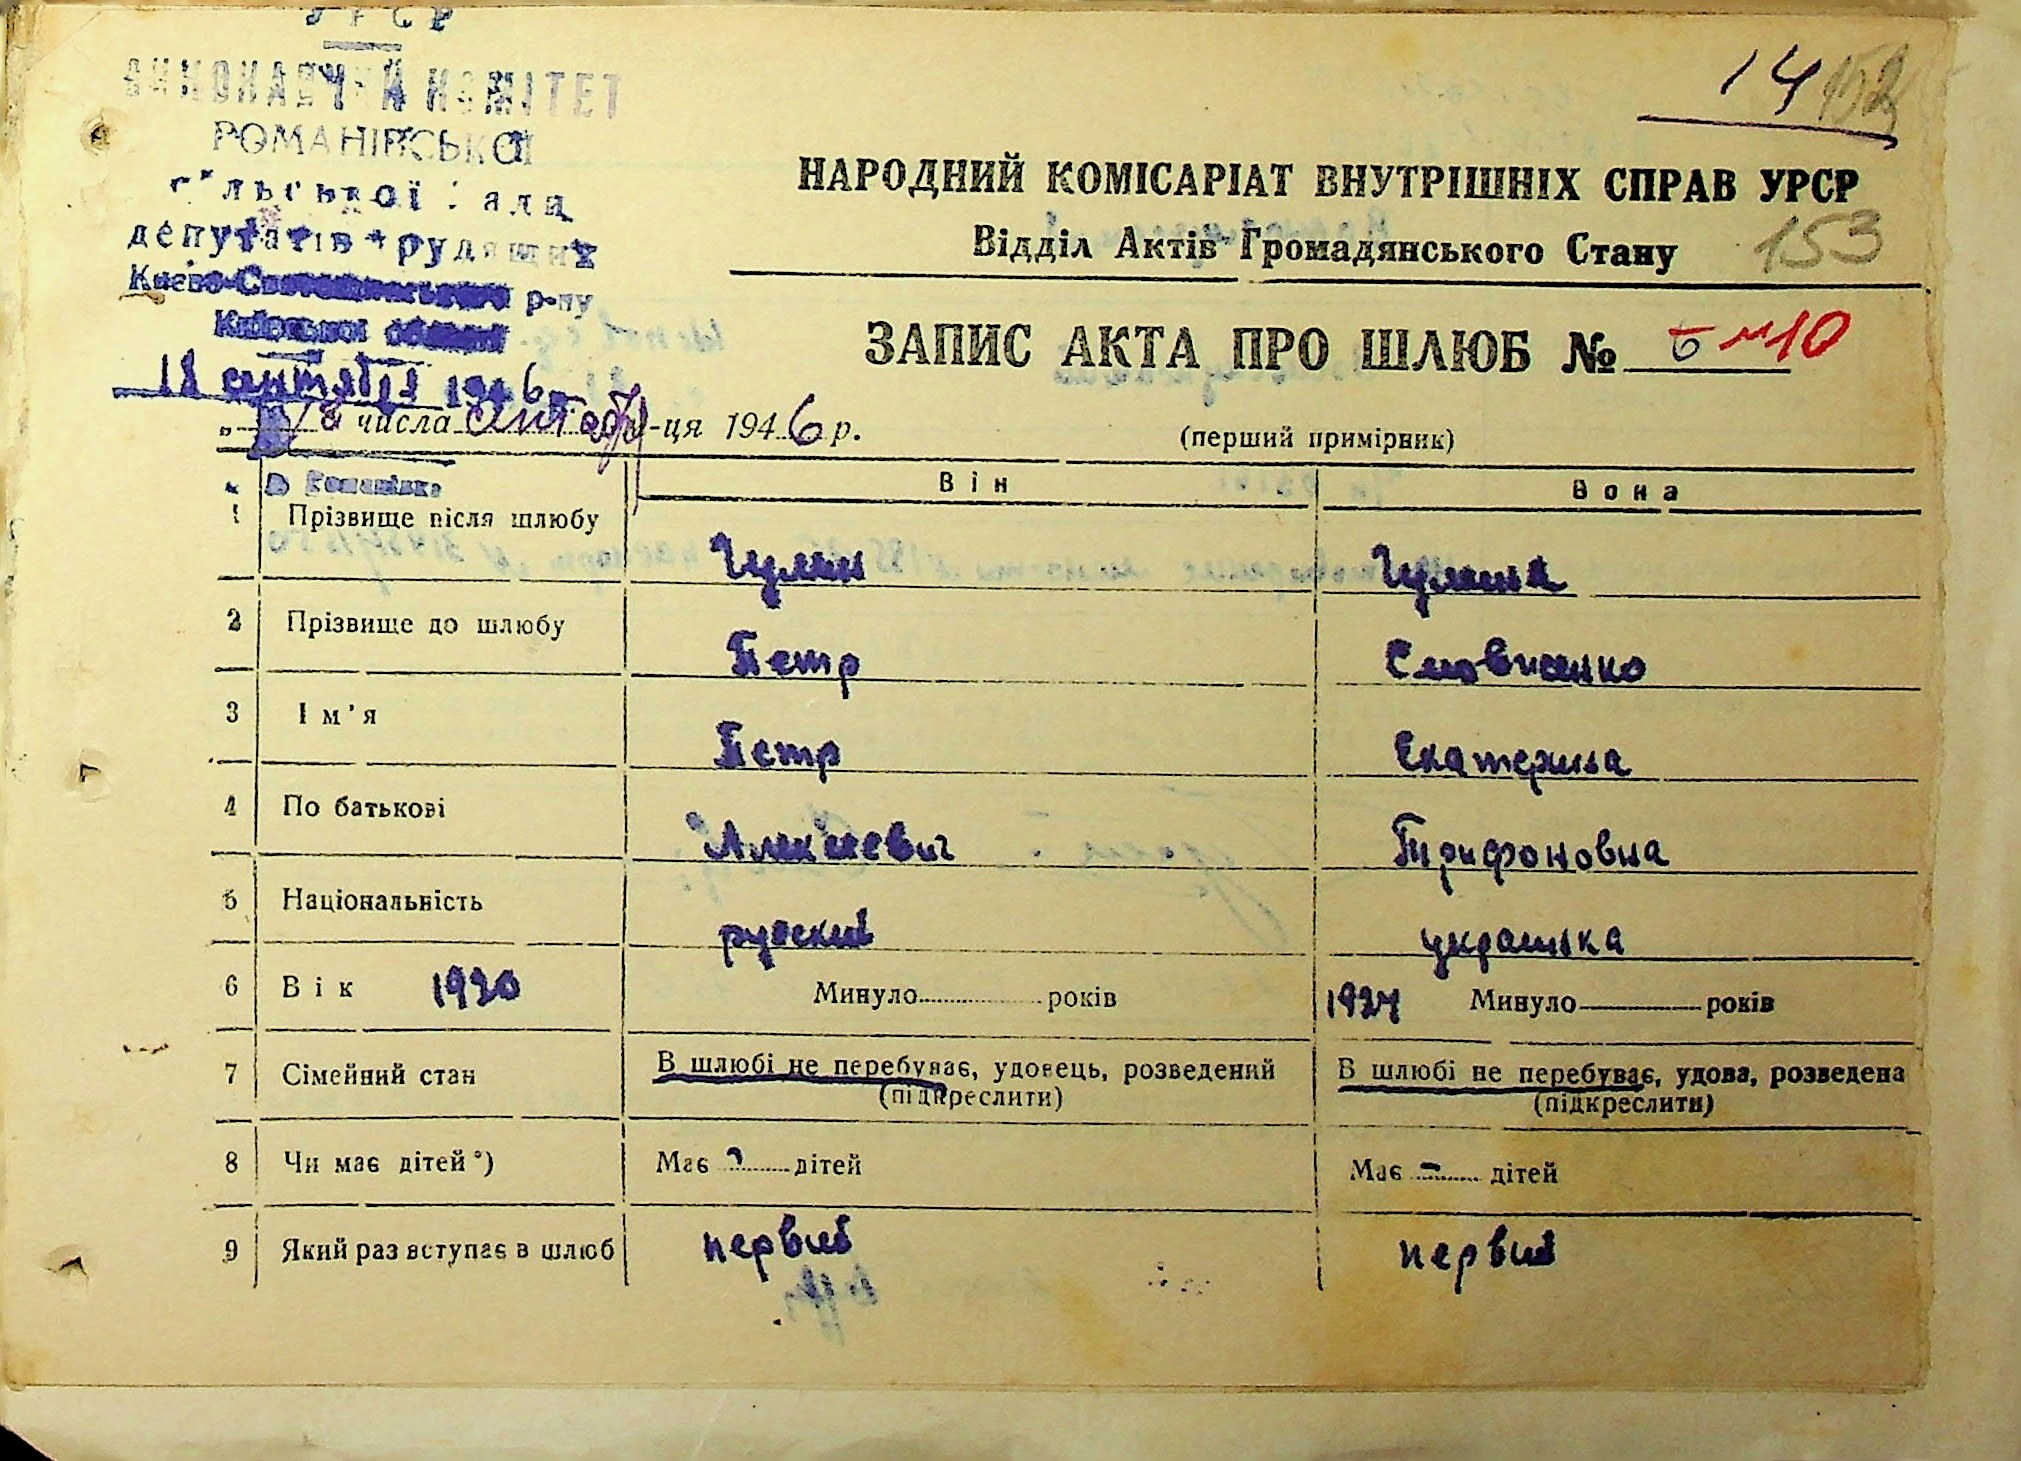 УРСР
ВИКОНАВЧИЙ КОМІТЕТ
РОМАНІВСЬКОЇ
сільської Ради
депутатів трудящих
Києво-Святошинського р-ну
Київської області
18 сентября 1946 г.
14 152
НАРОДНИЙ КОМІСАРІАТ ВНУТРІШНІХ СПРАВ УРСР
Відділ Актів Громадянського Стану 153
ЗАПИС АКТА ПРО ШЛЮБ № 6 №10
„ 18 числа сентябр -ця 1946 р.
(перший примірник)
с. Романівка
Він Вона
1 Прізвище після шлюбу
2 Прізвище до шлюбу Петр
3 Ім'я Петр Екатерина
4 По батькові Алексеевич Трифоновна
5 Національність руский украинка
6 Вік 1920 Минуло років 1924 Минуло років
7 Сімейний стан В шлюбі не перебуває, удовець, розведений В шлюбі не перебуває, удова, розведена
(підкреслити) (підкреслити)
8 Чи має дітей*) Має - дітей Має - дітей
9 Який раз вступає в шлюб первий первий